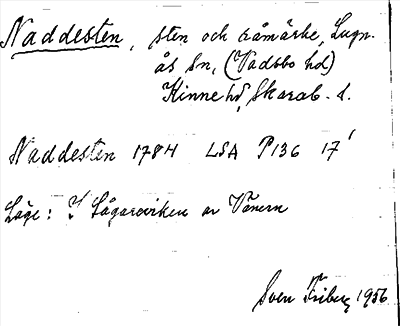 Naddesten, sten och råmärke, Lugn-
ås sn, (Vadsbo hd)
Kinne hd, Skarab. l.
Naddesten 1784 LSA P136 17¹
Läge: I Lågarviken av Vänern
Sven Friberg 1956